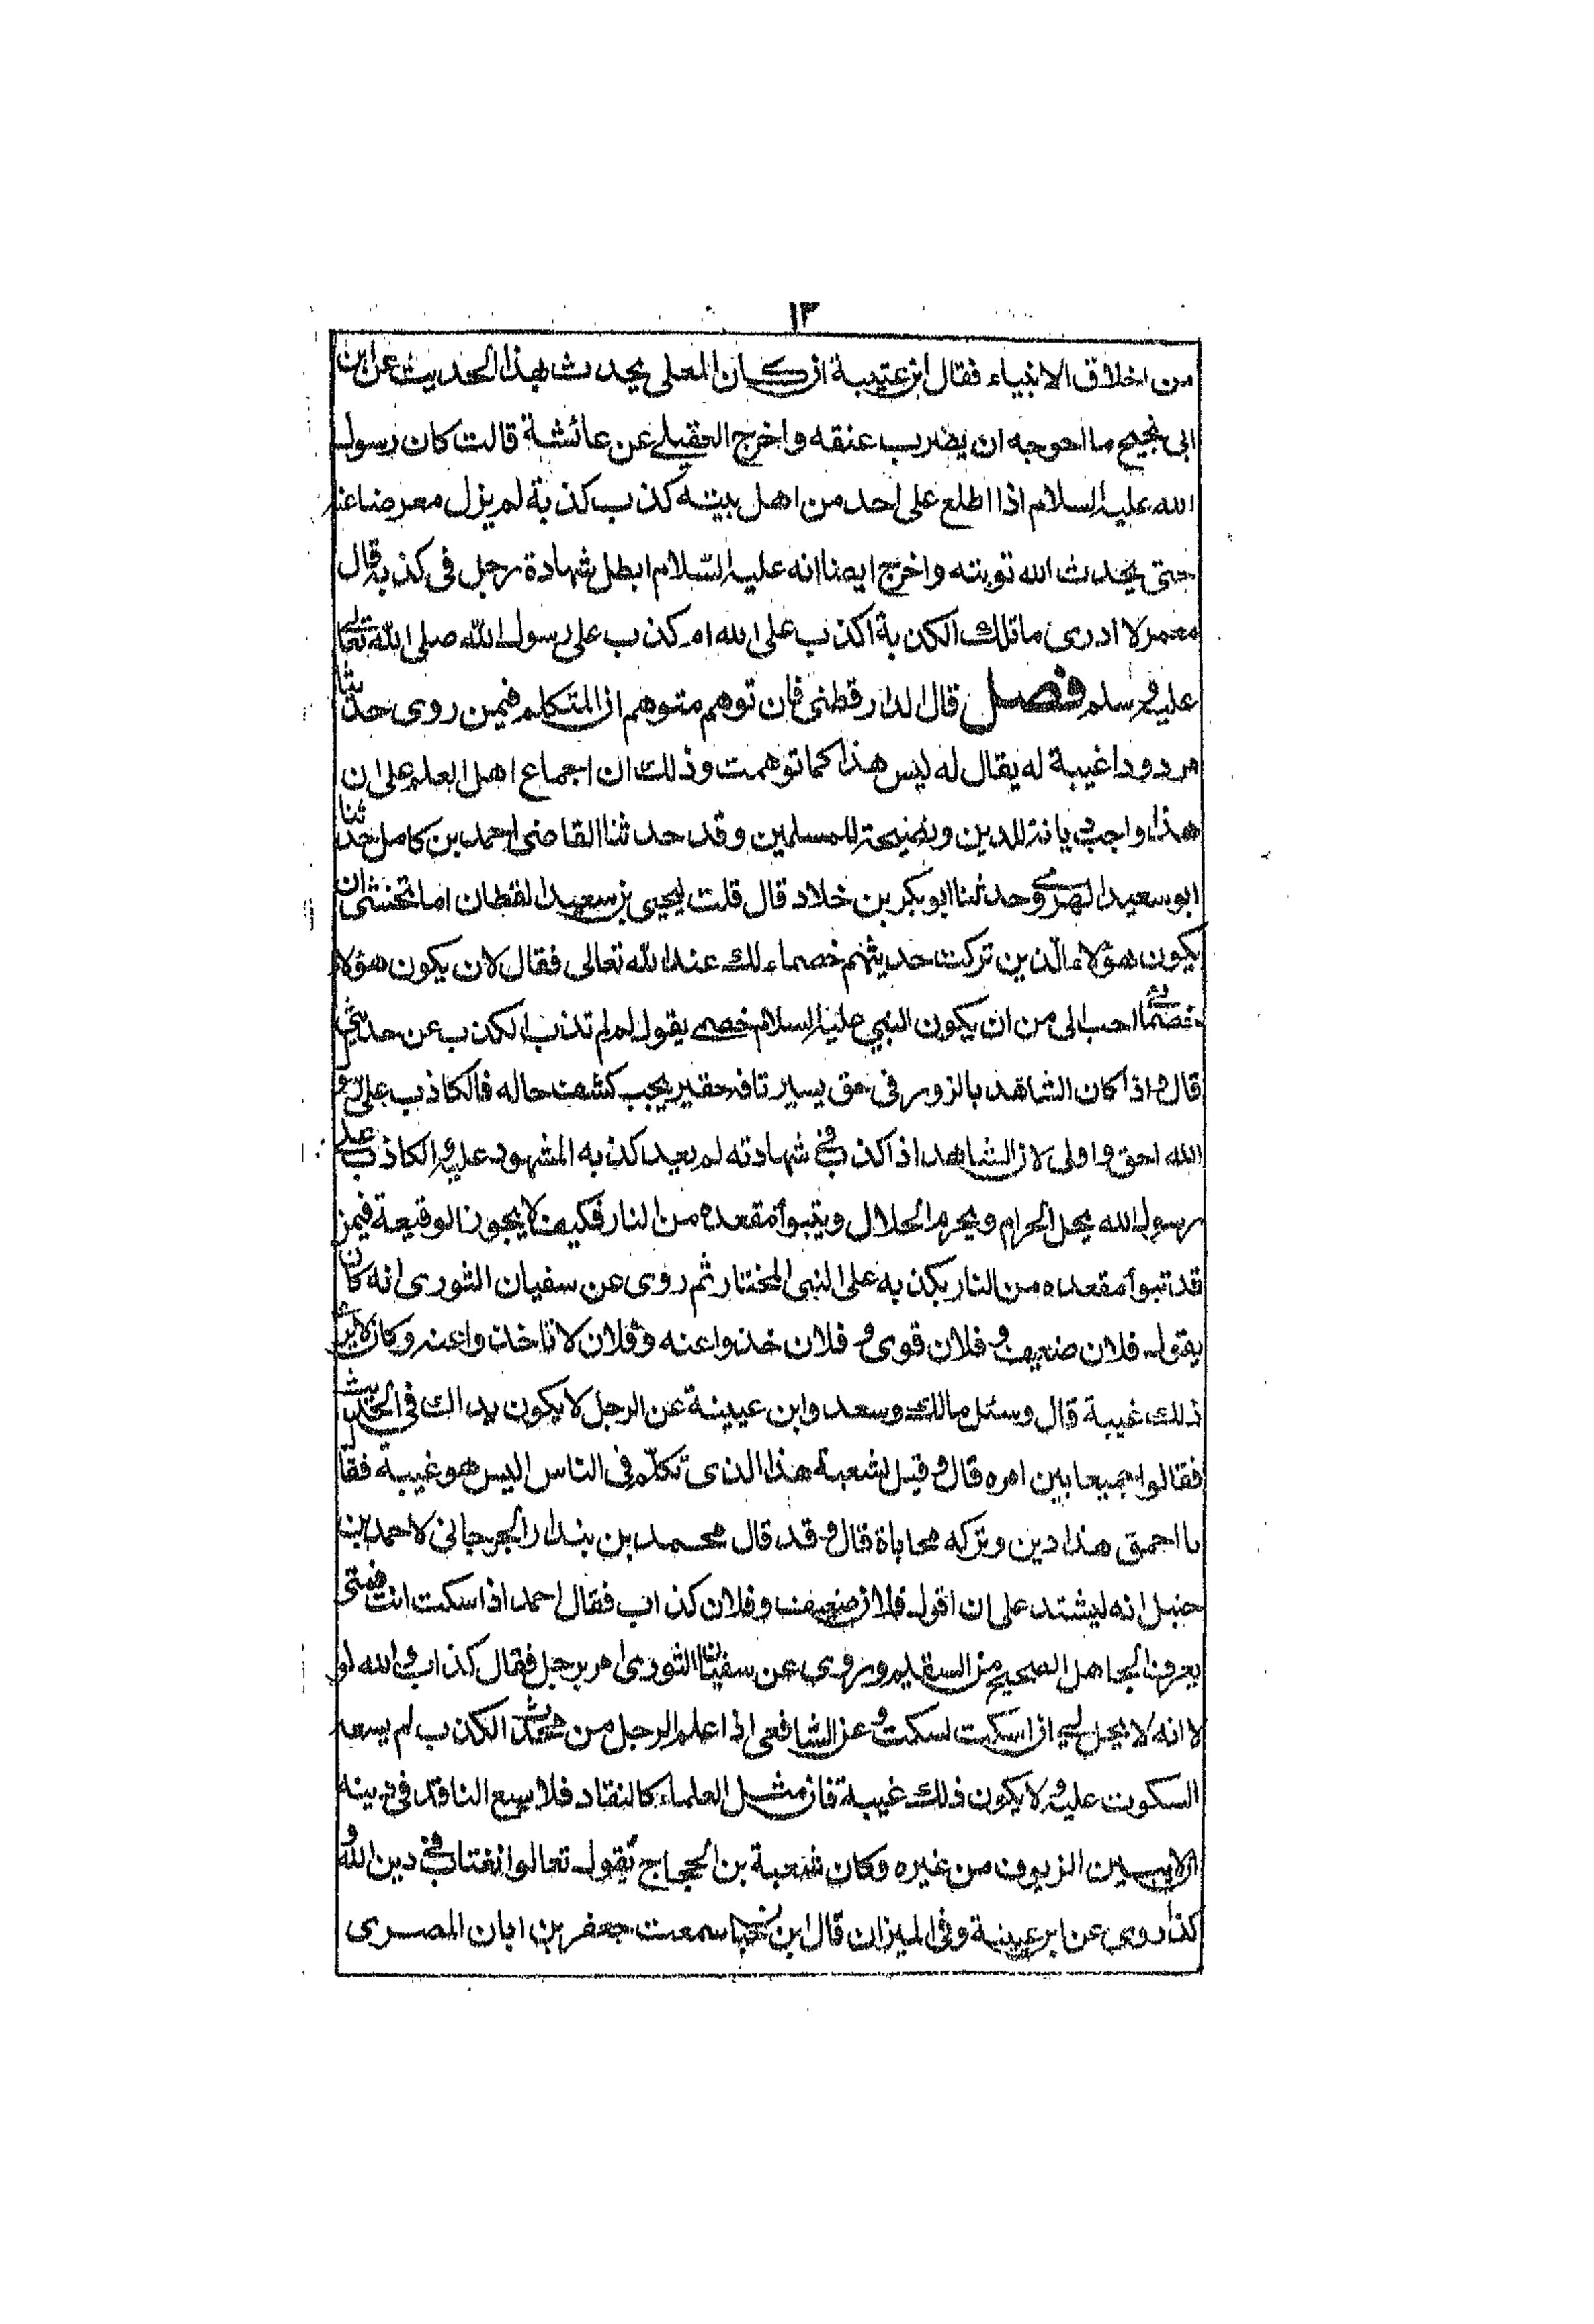 ١٣
من اخلاق الانبياء فقال ابن عتيبة ان كان المعلى يحدث بهذا الحديث عن ابن
ابى نجيح ما احوجه ان يضرب عنقه واخرج العقيلي عن عائشة قالت كان رسول
الله عليه السلام اذا اطلع على احد من اهل بيته كذب كذبة لم يزل معرضا عنه
حتى يحدث الله توبته واخرج ايضا انه عليه السلام ابطل شهادة رجل فى كذبه قال
معمر لا ادرى ما تلك الكذبة اكذب على الله ام كذب على رسول الله صلى الله تعالى
عليه وسلم فصل قال الدارقطنى فان توهم متوهم ان المتكلم فيمن روى حديثا
مردودا غيبة له يقال له ليس هذا كما توهمت وذلك ان اجماع اهل العلم على ان
هذا واجب ديانة للدين ونصيحة للمسلمين وقد حدثنا القاضى احمد بن كامل حدثنا
ابو سعيد الهروى وحدثنا ابو بكر بن خلاد قال قلت ليحيى بن سعيد القطان اما تخشى ان
يكون هؤلاء الذين تركت حديثهم خصماء لك عند الله تعالى فقال لان يكون هؤلاء
خصمائى احب الى من ان يكون النبي عليه السلام خصمي يقول لم لم تذب الكذب عن حديثى
قال واذا كان الشاهد بالزور فى حق يسير تافه حقير يجب كشف حاله فالكاذب على رسول
الله احق واولى لان الشاهد اذا كذب في شهادته لم يعد كذبه المشهود عليه والكاذب على
رسول الله يحل الحرام ويحرم الحلال ويتبوأ مقعده من النار فكيف لا يجوز الوقيعة فيمن
قد تبوأ مقعده من النار بكذبه على النبى المختار ثم روى عن سفيان الثورى انه كان
يقول فلان ضعيف وفلان قوى وفلان خذوا عنه وفلان لا تاخذوا عنه وكان لا يرى
ذلك غيبة قال وسئل مالك وسعد وابن عيينة عن الرجل لا يكون بذاك فى الحديث
فقالوا جميعا بين امره قال وقيل لشعبة هذا الذى تكلم فى الناس اليس هو غيبة فقال
يا احمق هذا دين وتركه محاباة قال وقد قال محمد بن بندار الجرجانى لاحمد بن
حنبل انه ليشتد على ان اقول فلان ضعيف وفلان كذاب فقال احمد اذا سكت انت فمتى
يعرف الجاهل الصحيح من السقيم وروى عن سفيان الثورى مر برجل فقال كذاب والله لو
لا انه لا يحل لي ان اسكت لسكت وعن الشافعى اذا علم الرجل من محدث الكذب لم يسعه
السكوت عليه ولا يكون ذلك غيبة فان مثل العلماء كالنقاد فلا يسع الناقد فى دينه
ان لا يبين الزيوف من غيره وكان شعبة بن الحجاج يقول تعالوا نغتاب في دين الله و
كذا روى عن ابن عيينة وفى الميزان قال ابن سمعت جعفر بن ابان المصرى